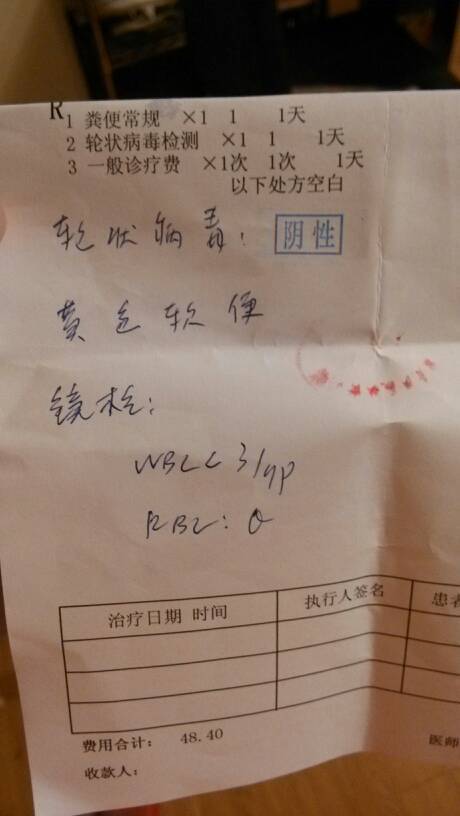 R
1 粪便常规 ×1 1 1天
2 轮状病毒检测 ×1 1 1天
3 一般诊疗费 ×1次 1次 1天
以下处方空白
轮状病毒: 阴性
黄色软便
镜检:
WBC<3/HP
RBC: 0
治疗日期 时间 执行人签名 患者
费用合计: 48.40 医师
收款人: